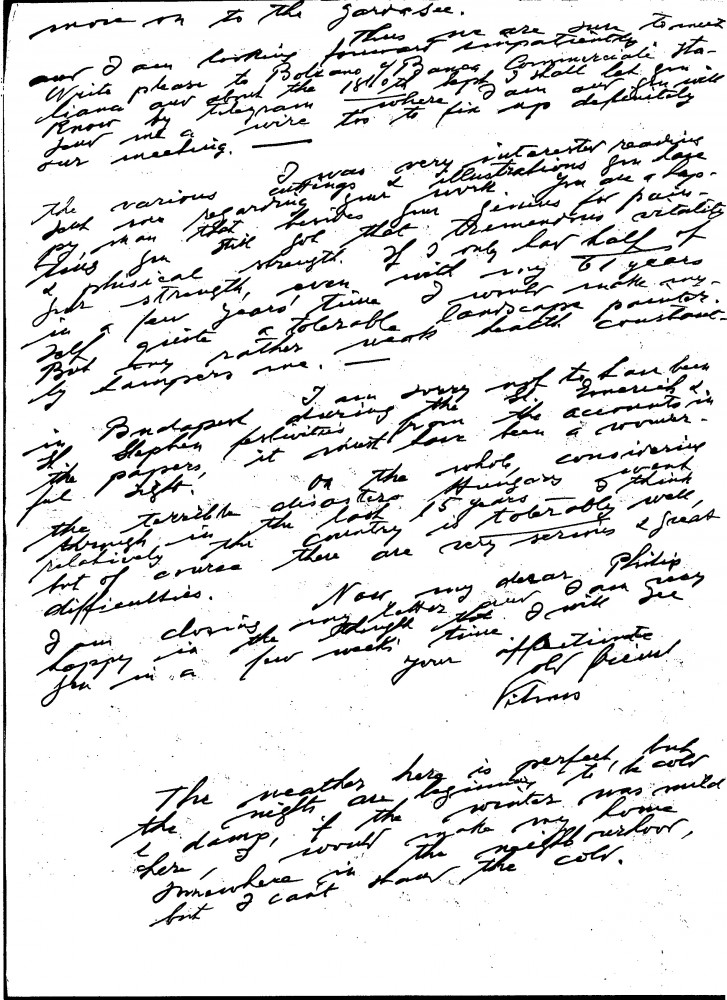 move on to the Gardasee.
Thus we are sure to meet
and I am looking forward impatiently to
Write please to Bolzano % Banca Commerciale Ita-
liana and about the 18th Sept I shall let you
know by telegram where I am and you will
send me a wire too to fix up definitely
our meeting. —
I was very interested reading
the various cuttings & illustrations you have
sent me regarding your work. You are a hap-
py man that besides your genius for pain-
ting you still got that tremendous vitality
& phisical strength. If I only had half of
your strength, even with my 61 years
in a few years' time I would make my-
self quite a tolerable landscape painter.
But my rather weak health constant-
ly hampers me. —
I am sorry not to have been
in Budapest during the St Emerich &
St Stephen festivities from the accounts in
the papers, it must have been a wonder-
ful sight.
On the whole considering
the terrible disasters Hungary went
through in the last 15 years I think
relatively the country is tolerably well,
but of course there are very serious & great
difficulties.
Now my dear Philip
I am closing my letter and I am very
happy in the thought that I will see
you in a few weeks time.
your affectionate
old friend
Vilmos
The weather here is perfect, but
the nights are beginning to be cold
& damp, if the winter was mild
here, I would make my home
somewhere in the neighbourhood,
but I can't stand the cold.